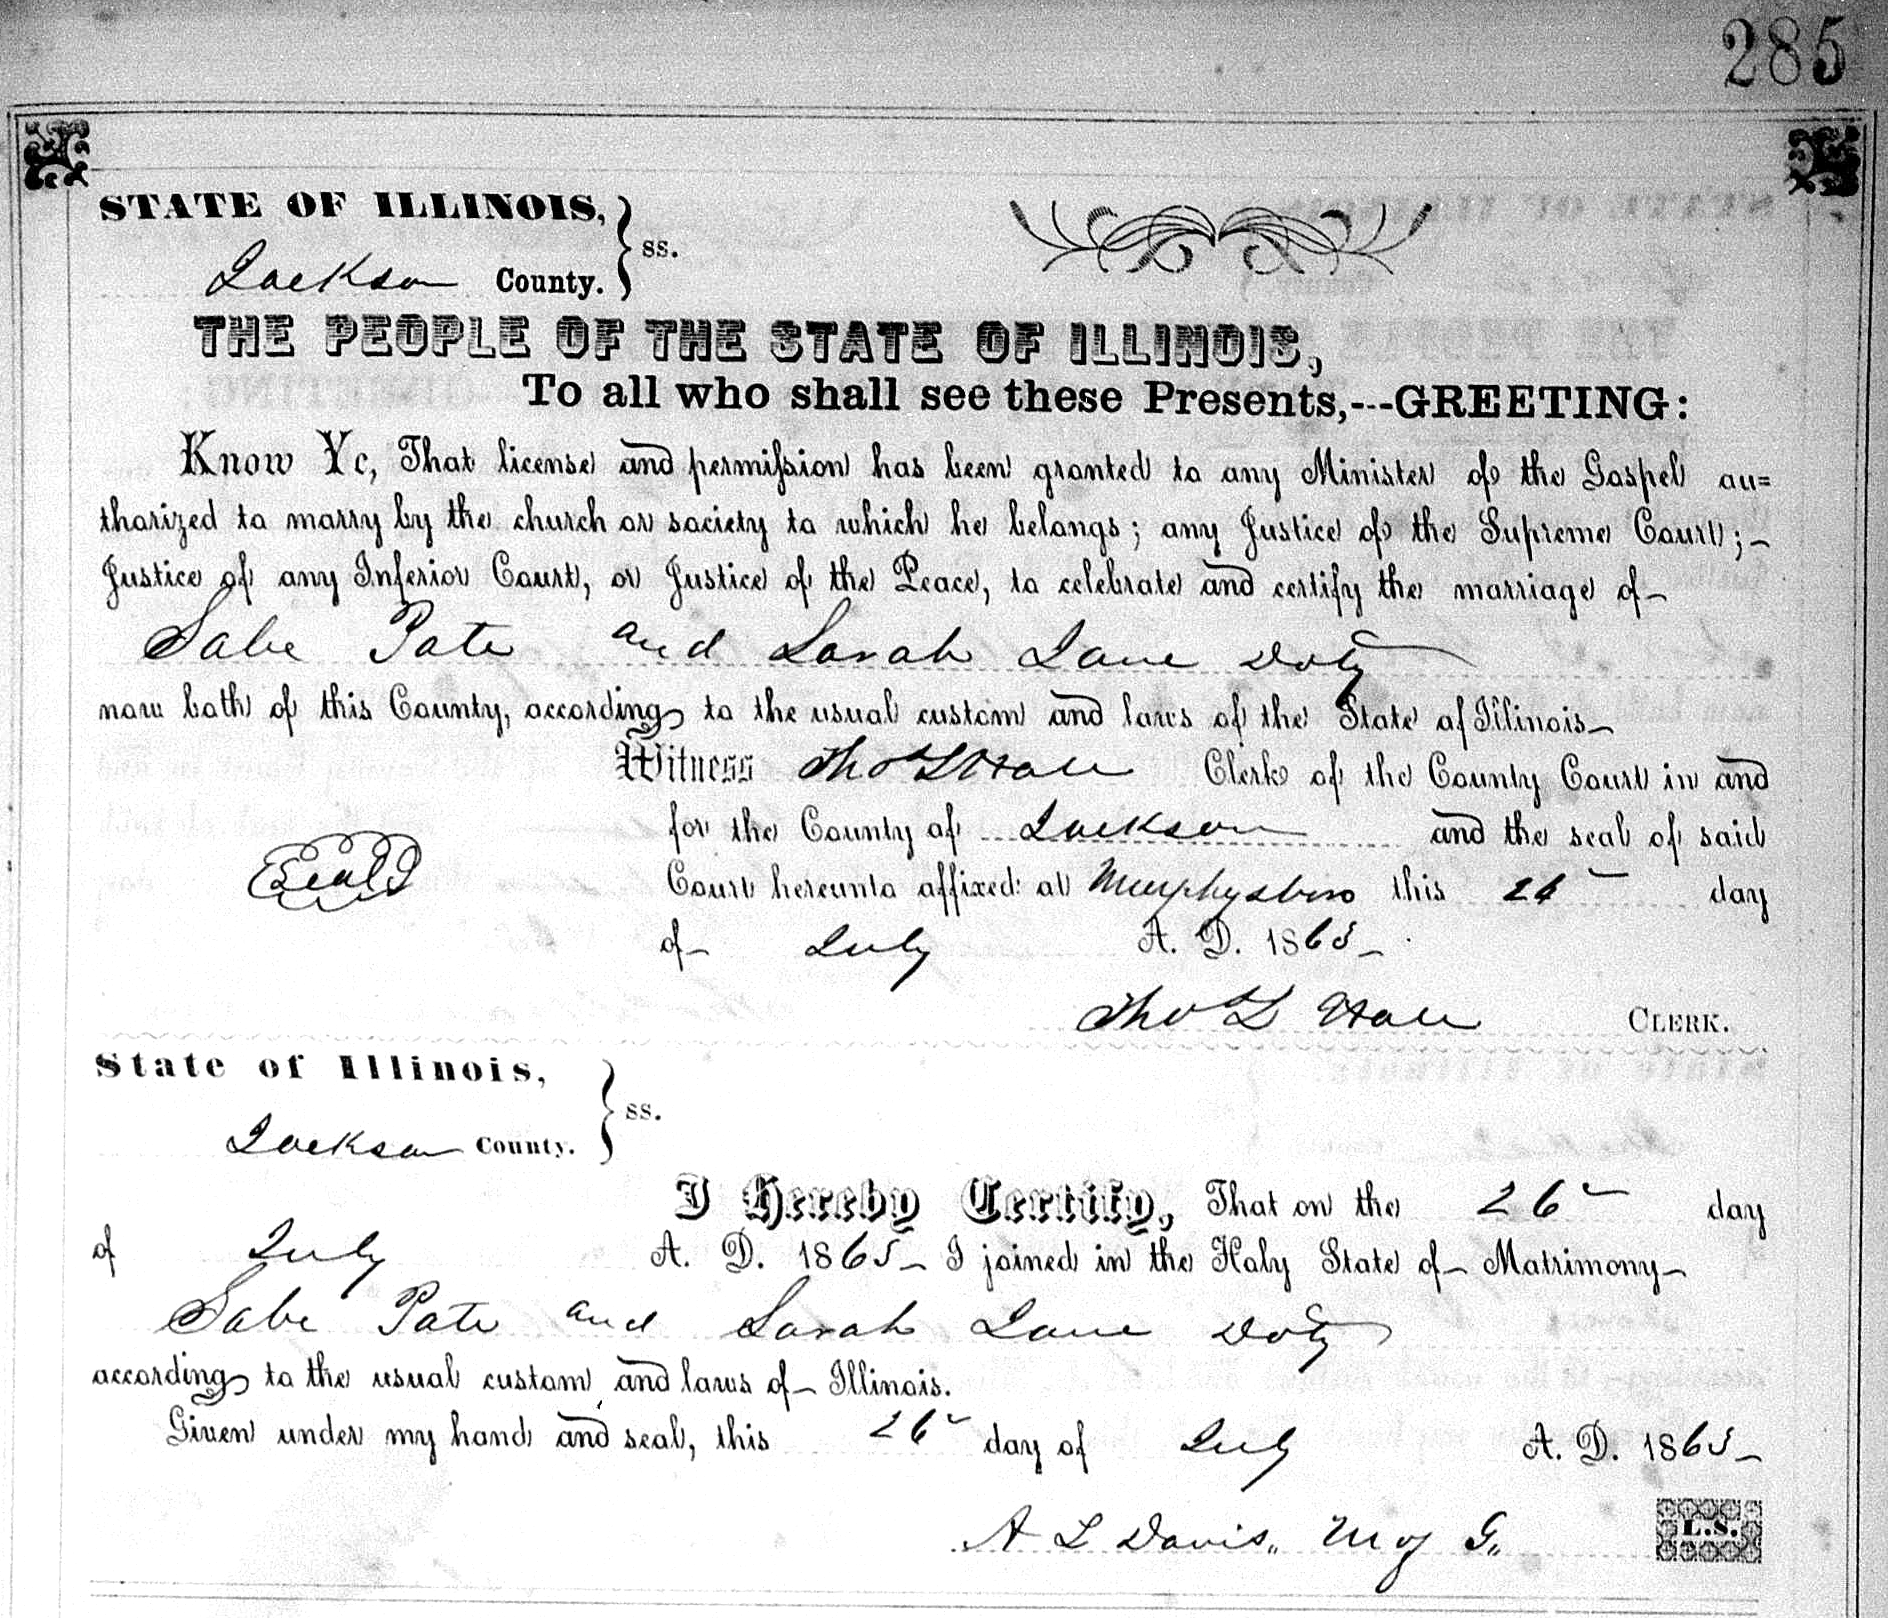 285
STATE OF ILLINOIS,
Jackson County. } ss.
THE PEOPLE OF THE STATE OF ILLINOIS,
To all who shall see these Presents,---GREETING:
Know Ye, That license and permission has been granted to any Minister of the Gospel au=
thorized to marry by the church or society to which he belongs; any Justice of the Supreme Court;—
Justice of any Inferior Court, or Justice of the Peace, to celebrate and certify the marriage of—
Sabe Pate and Sarah Jane Doty
now both of this County, according to the usual custom and laws of the State of Illinois—
Witness Tho L Hall Clerk of the County Court in and
for the County of Jackson and the seal of said
Seal Court hereunto affixed at Murphysboro this day
of July A. D. 1865—
Tho L Hall CLERK.
State of Illinois,
Jackson County. } ss.
I Hereby Certify, That on the 26 day
of July A. D. 1865— I joined in the Holy State of Matrimony—
Sabe Pate and Sarah Jane Doty
according to the usual custom and laws of Illinois.
Given under my hand and seal, this 26 day of July A. D. 1865—
A L Davis,, M of G,, L.S.